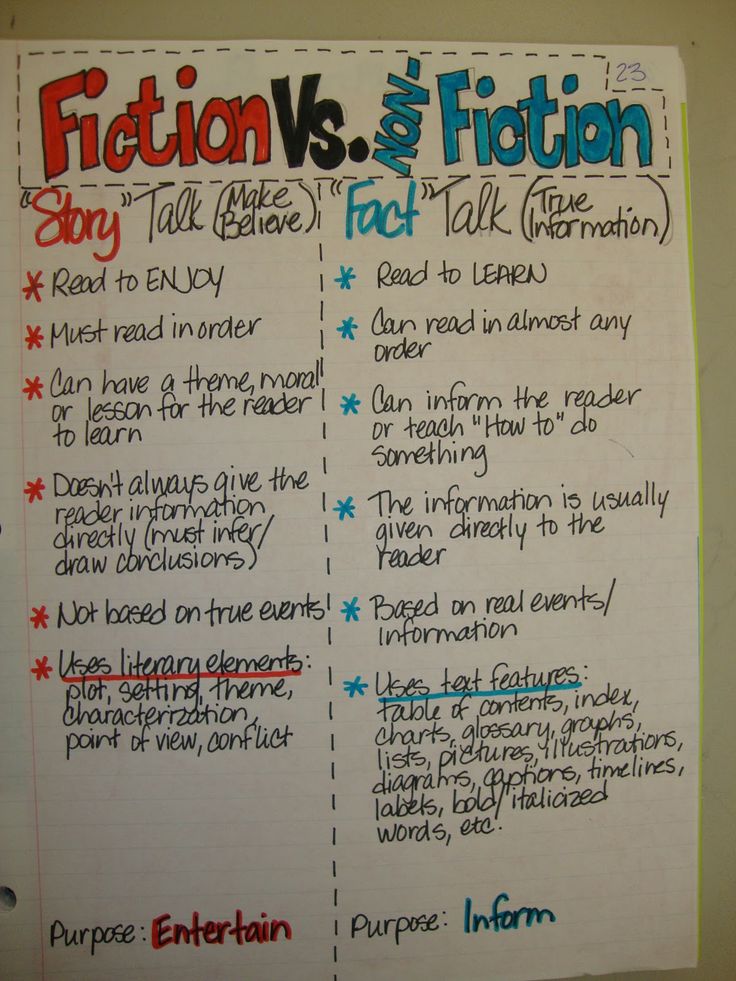 23
Fiction Vs. NON-Fiction
"Story" Talk (Make Believe)
* Read to ENJOY
* Must read in order
* Can have a theme, moral
or lesson for the reader
to learn
* Doesn't always give the
reader information
directly (must infer/
draw conclusions)
* Not based on true events
* Uses literary elements:
plot, setting, theme,
characterization,
point of view, conflict
Purpose: Entertain
"Fact" Talk (True Information)
* Read to LEARN
* Can read in almost any
order
* Can inform the reader
or teach "How to" do
something
* The information is usually
given directly to the
reader
* Based on real events/
information
* Uses text features:
table of contents, index,
charts, glossary, graphs,
lists, pictures, illustrations,
diagrams, captions, timelines,
labels, bold/italicized
words, etc.
Purpose: Inform